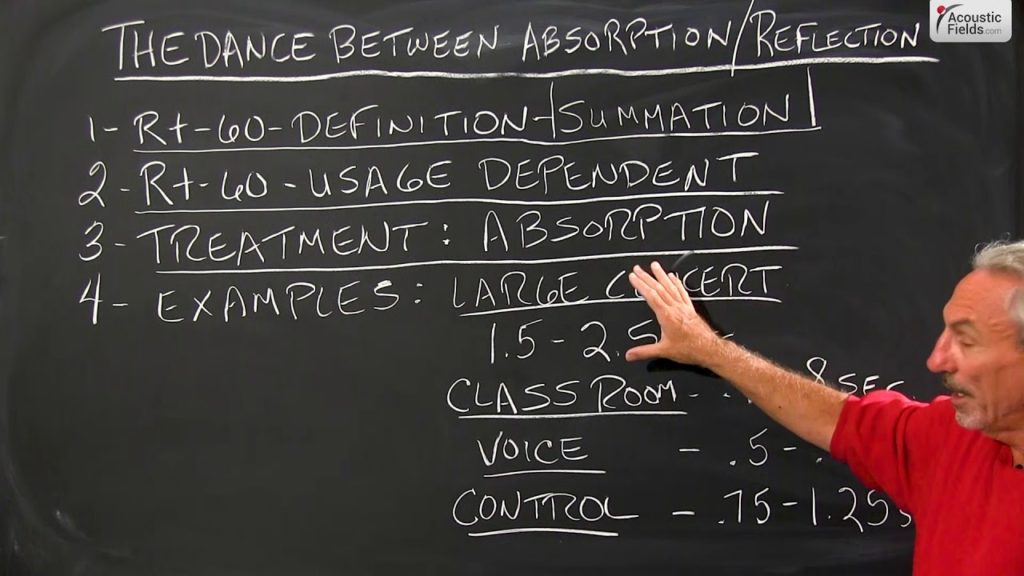 Acoustic
Fields.com
THE DANCE BETWEEN ABSORPTION/REFLECTION
1- Rt-60-DEFINITION-|SUMMATION|
2- Rt-60-USAGE DEPENDENT
3- TREATMENT: ABSORPTION
4- EXAMPLES: LARGE
1.5-2.5
CLASS ROOM - 8 SEC
VOICE - .5-
CONTROL - .75-1.25